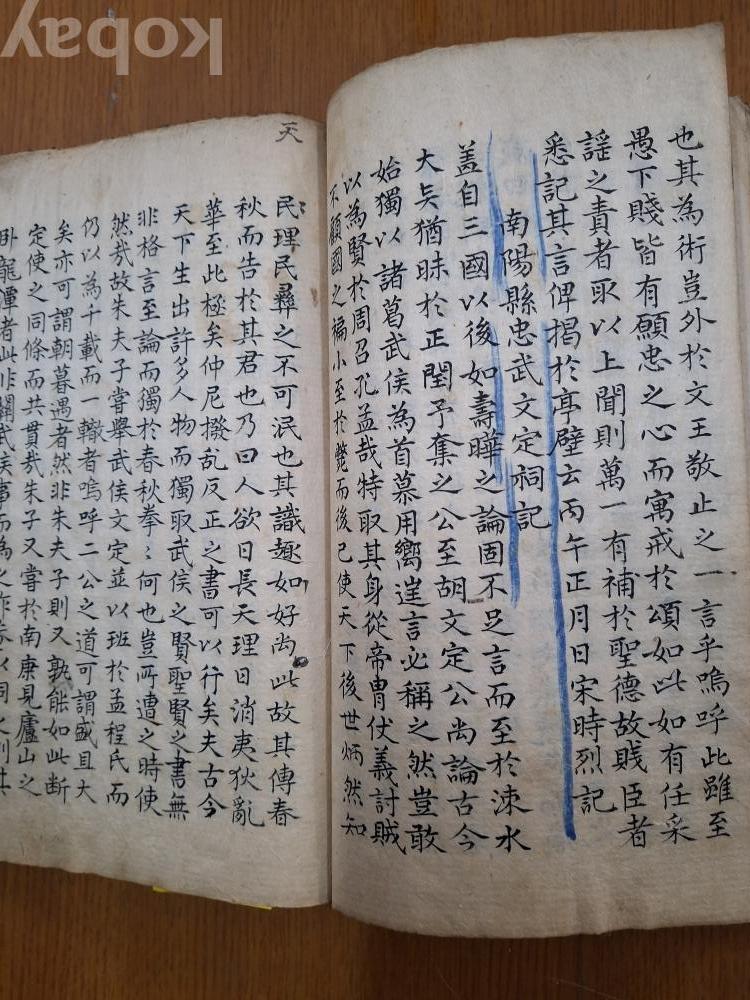 也其為術豈外於文王敬止之一言乎嗚呼此雖至
愚下賤皆有願忠之心而寓戒於頌如此如有任采
謡之責者取以上聞則萬一有補於聖德故賤臣者
悉記其言俾揭於亭壁云丙午正月日宋時烈記
南陽縣忠武文定祠記
盖自三國以後如壽曄之論固不足言而至於涑水
大吳猶昧於正閏予奪之公至胡文定公尚論古今
始獨以諸葛武侯為首慕用嚮 言必稱之然豈敢
以為賢於周召孔孟哉特取其身從帝胄伏義討賊
不顧國之褊小至於斃而後已使天下後世炳然知
天
民理民彛之不可泯也其識趣如好尚此故其傳春
秋而告於其君也乃曰人欲日長天理日消夷狄亂
華至此極矣仲尼撥乱反正之書可以行矣夫古今
天下生出許多人物而獨取武侯之賢聖賢之書無
非格言至論而獨於春秋拳〻何也豈所遭之時使
然哉故朱夫子嘗舉武侯文定並以班於孟程氏而
仍以為千載而一轍者嗚呼二公之道可謂盛且大
矣亦可謂朝暮遇者然非朱夫子則又孰能如此断
定使之同條而共貫哉朱子又嘗於南康見廬山之
卧龍潭者此非關武侯事而為之作
kobay